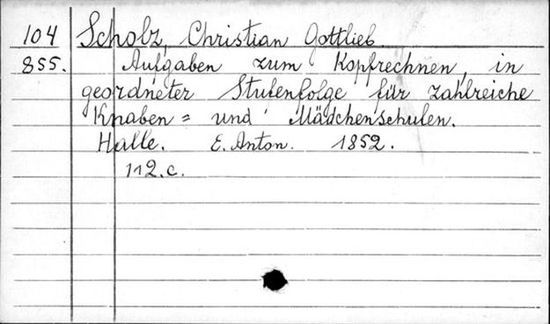 104 Scholz, Christian Gottlieb
855. Aufgaben zum Kopfrechnen in
geordneter Stufenfolge für zahlreiche
Knaben= und Mädchenschulen.
Halle. E. Anton. 1852.
112.c.